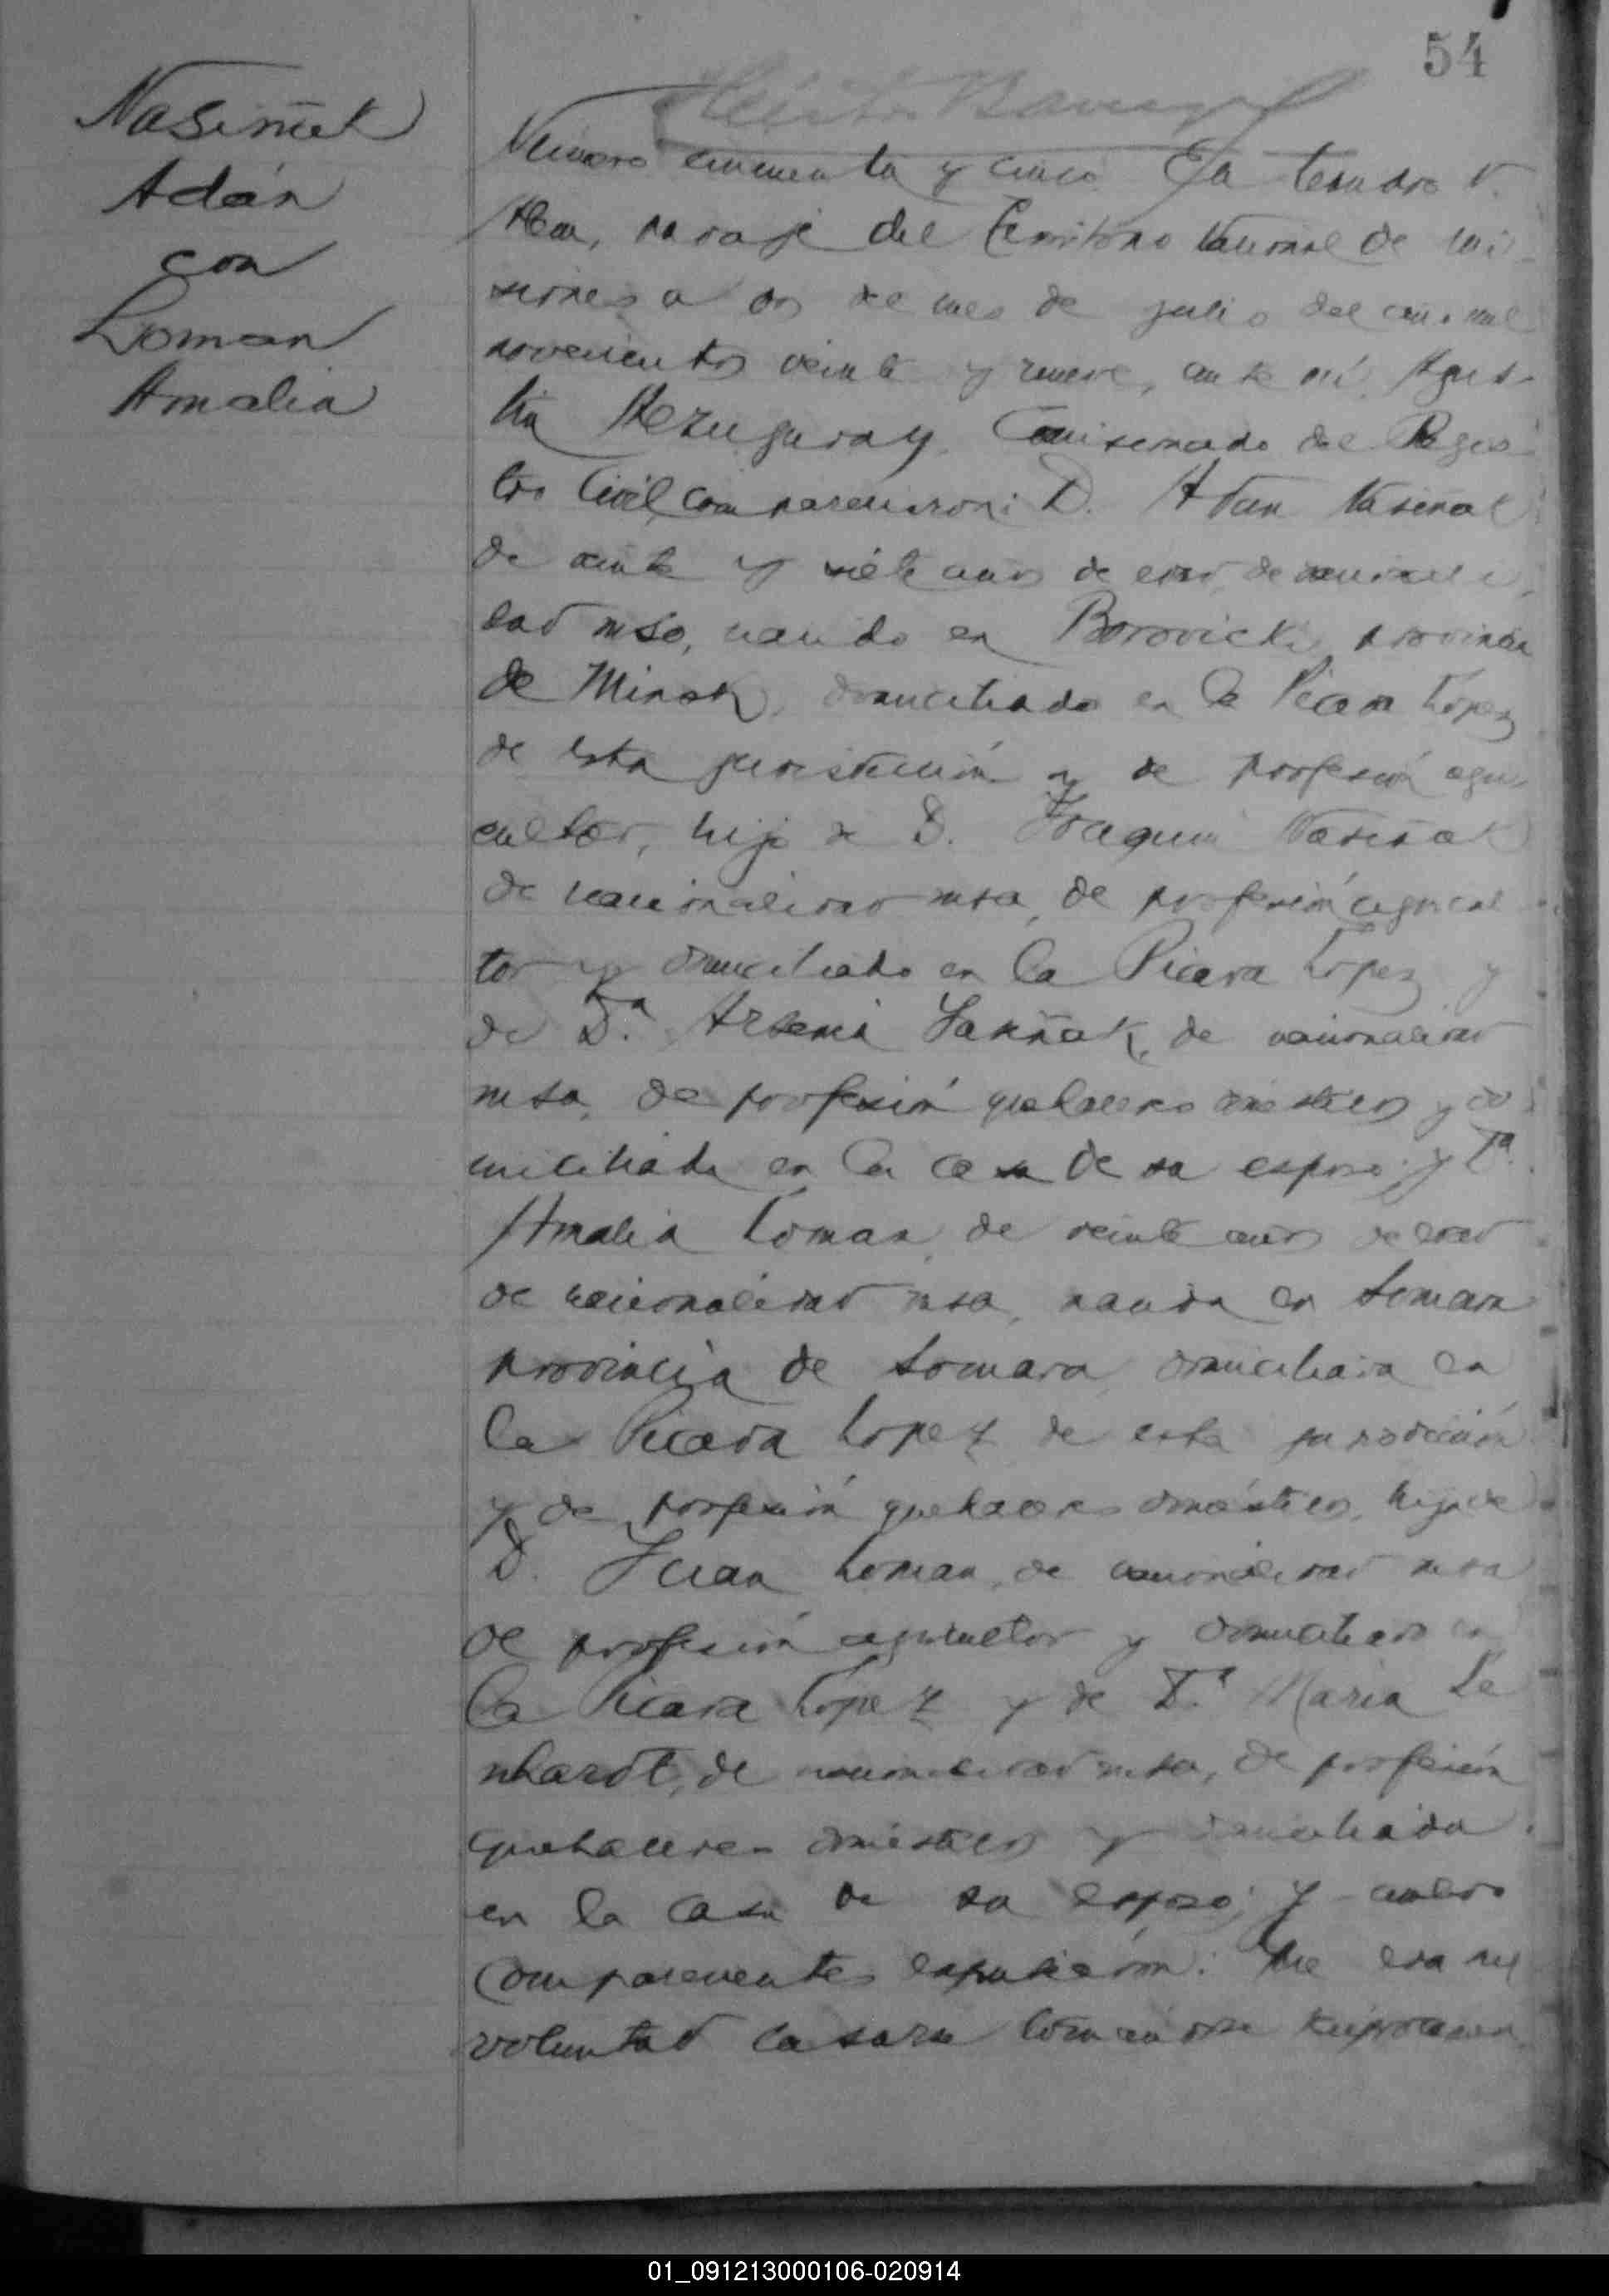 54
Nasiñuk
Adán
con
Loman
Amalia
Número cincuenta y cinco En Leandro N.
Alem, paraje del Territorio Nacional de Mi-
siones a dos de mes de julio del año mil
novecientos veinte y nueve, ante mí, Agus-
tín Encargado del Regis-
tro Civil, comparecieron: D. Adan Nasiñak
de veinte y siete años de edad, de nacionali-
dad rusa, nacido en Borovicki provincia
de Minsk, domiciliado en la Picada López
de esta jurisdicción y de profesión agri-
cultor, hijo de D. Joaquin Nasiñak
de nacionalidad rusa, de profesión agricul-
tor y domiciliado en la Picada López y
de Da. Arsenia de nacionalidad
rusa, de profesión quehaceres domésticos y do-
miciliada en la casa de su esposo; y Da.
Amalia Loman, de veinte años de edad
de nacionalidad rusa, nacida en
provincia de domiciliada en
la Picada Lopez de esta jurisdicción
y de profesión quehaceres domésticos, hija de
D. Juan Loman, de nacionalidad rusa
de profesión agricultor y domiciliado en
la Picada Lopez y de Da. Maria Le
nhardt, de nacionalidad rusa, de profesión
quehaceres domésticos y domiciliada
en la casa de su esposo; y ambos
comparecientes expusieron: Que era su
voluntad casarse tomándose recíprocamen
01_091213000106-020914